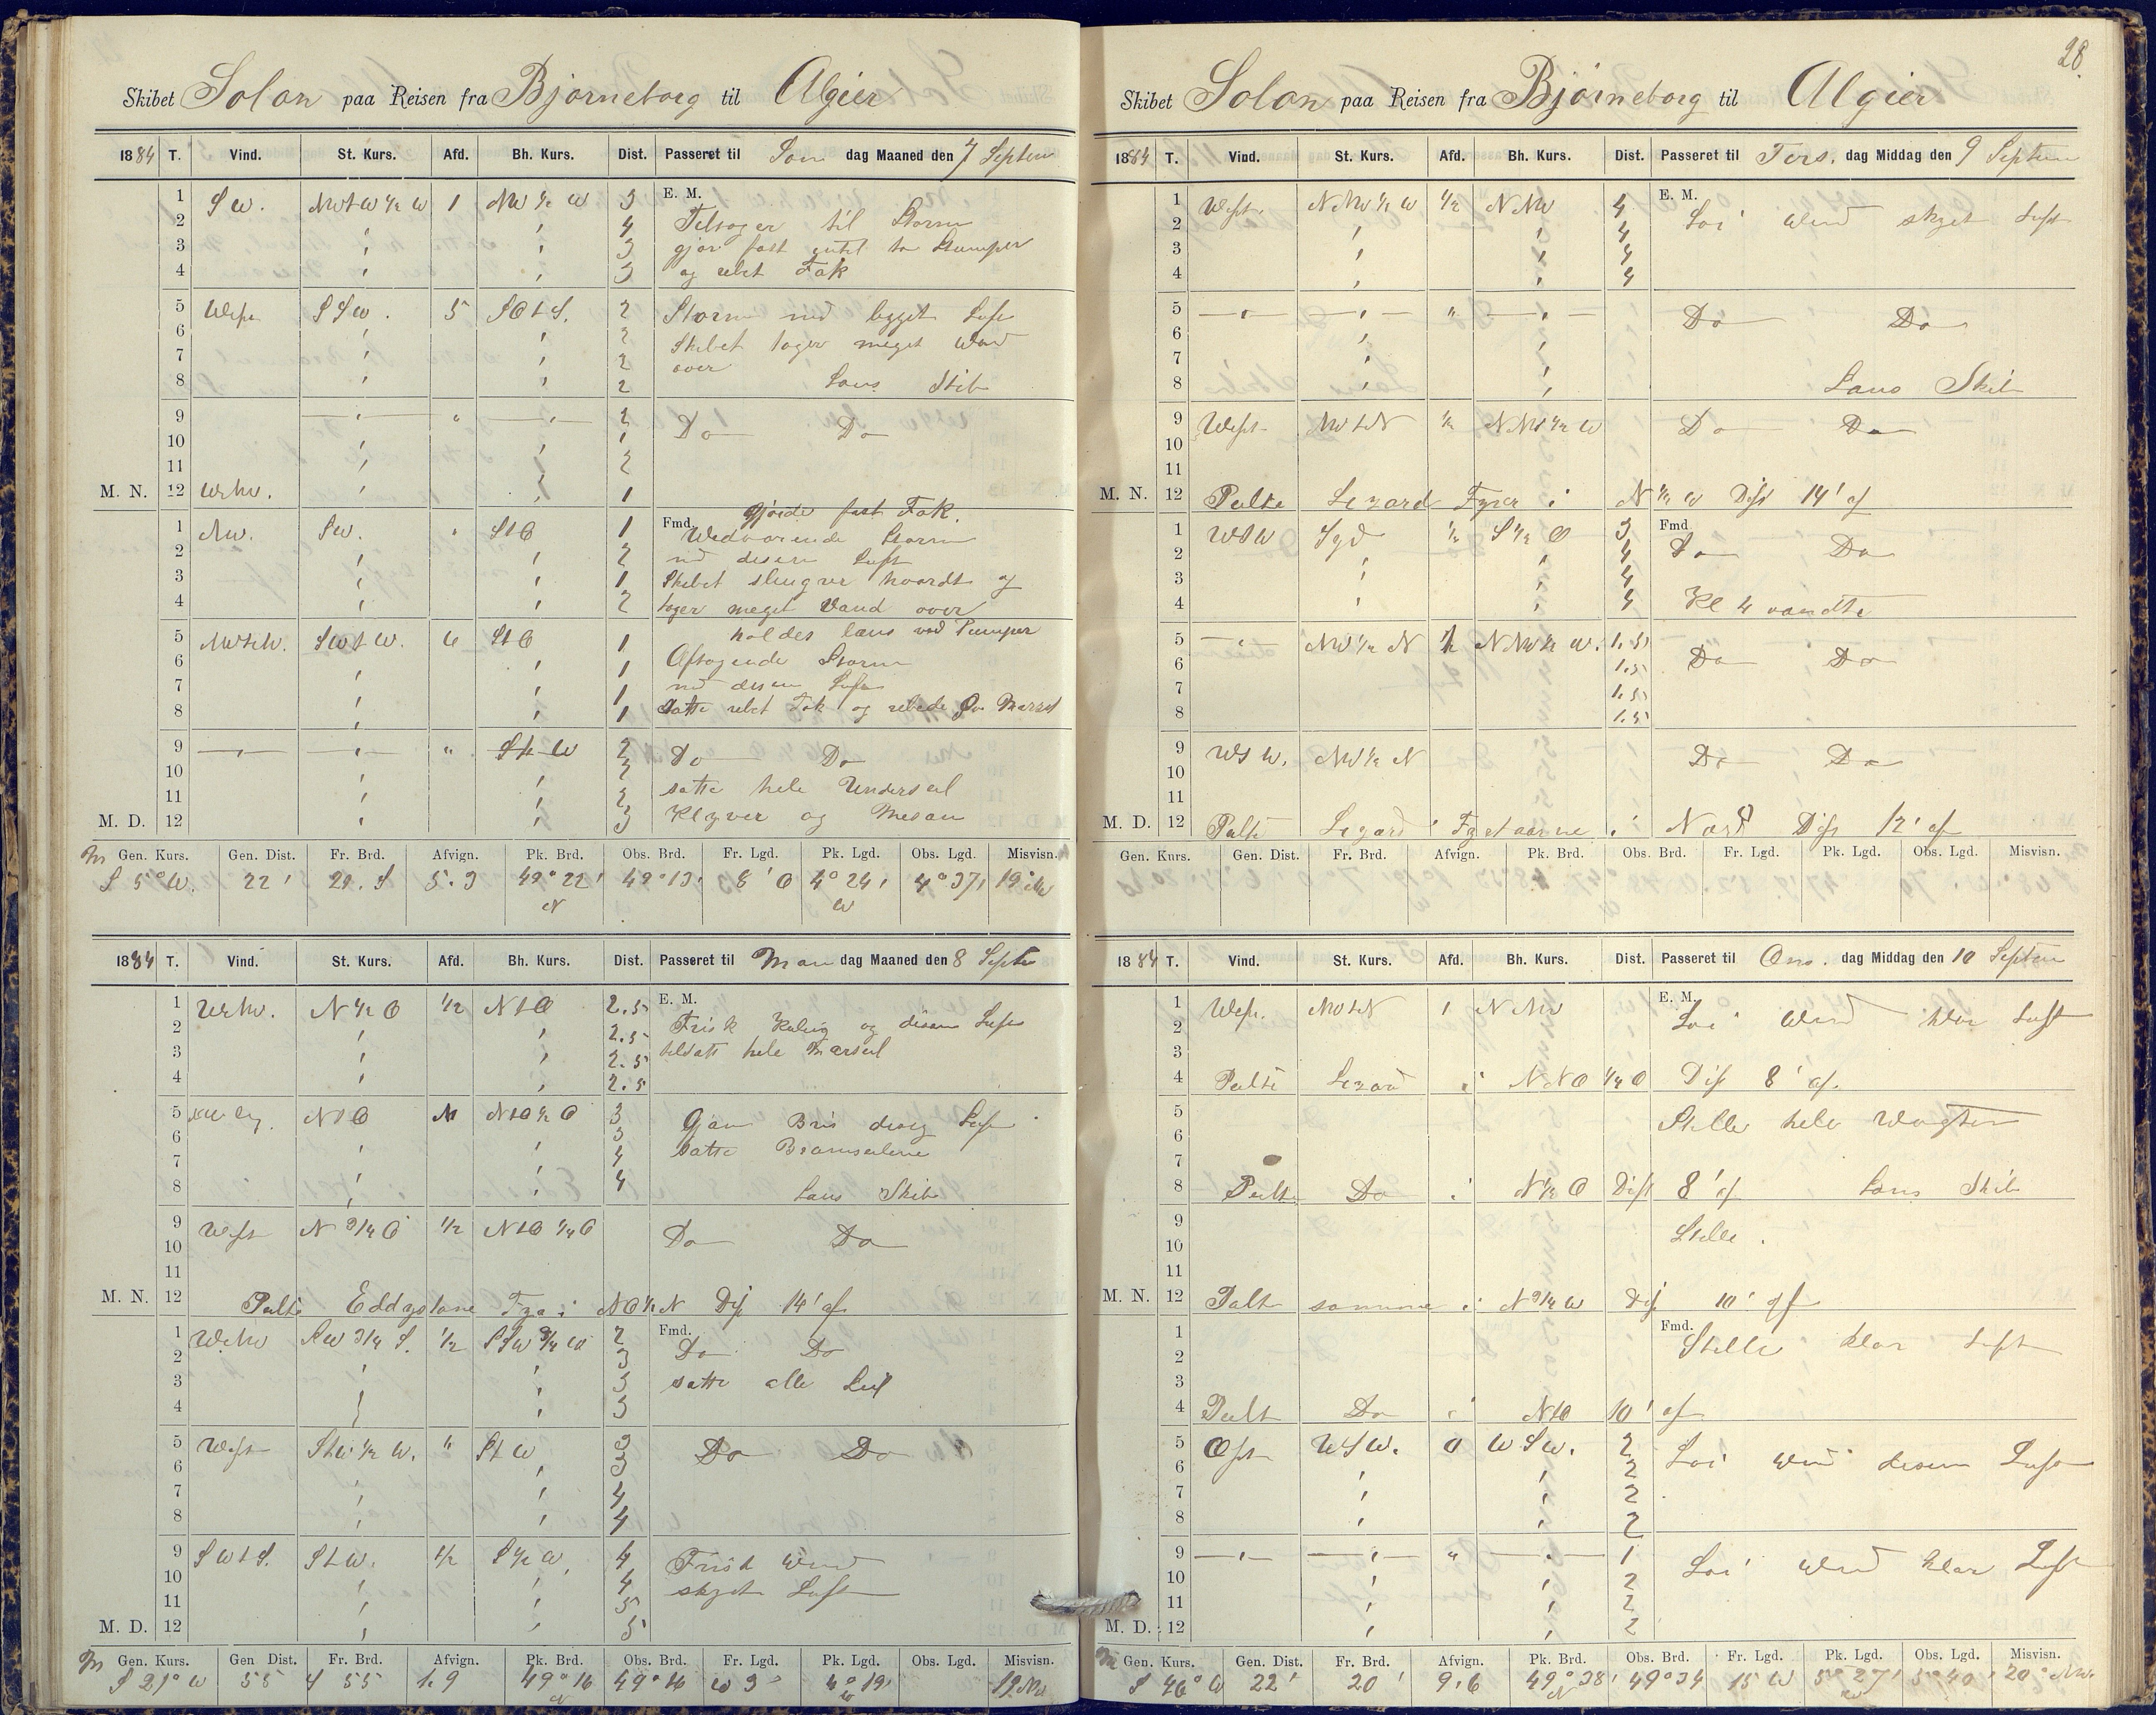 Skibet Solon paa Reisen fra Bjørneborg til Algier
1884 T. Vind. St. Kurs. Afd. Bh. Kurs. Dist. Passeret til Søn dag Maaned den 7 Septem
E. M.
1 SW. NWtW ½ W 1 NW ½ W 3
2 4 Tiltager til Storm
3 3 gjør fast
4 3 og rebet Fok
5 West SSW. 5 SOtS. 2 Storm med Luft
6 2 Skibet tager meget Vand
7 2 over
8 2 Læns Skib
9 Do Do
10
11 2
M. N. 12 1
gjorde fast Fok.
Fmd.
1 NW. SW. StO 1 Vedvarende Storm
2 2 med disen Luft
3 1 Skibet slingrer haardt og
4 2 tager meget Vand over
holdes læns ved Pumper
5 SWtW. 6 StO 1 Aftagende Storm
6 1 med disen Luft
7 1
8 1 Satte rebet Fok og rebede
9 StW 2 Do Do
10 2
11 2 satte hele Underseil
M. D. 12 3 Klyver og Mesan
Gen. Kurs. Gen. Dist. Fr. Brd. Afvign. Pk. Brd. Obs. Brd. Fr. Lgd. Pk. Lgd. Obs. Lgd. Misvisn.
S 5° W. 22' 22. S 5.3 49° 22' N 49° 13' 8' O 4° 24' W 4° 37' 19° NW
1884 T. Vind. St. Kurs. Afd. Bh. Kurs. Dist. Passeret til Man dag Maaned den 8 Septem
E. M.
1 N ½ O ½ NtO 2.5
2 2.5 Frisk Kuling og disen Luft
3 2.5 hele Mærseil
4 2.5
5 NtO NtO ½ O 3 Bris diseg Luft
6 3 satte Bramseilene
7 4
8 4 Læns Skib
9 West N ¾ O ½ NtO ¼ O Do Do
10
11
M. N. 12 Peilte Eddystone Fyr i NO ½ N Dist 14' af
Fmd.
1 WNW SW ¾ S. ½ SSW ¾ W 2 Do Do
2 3
3 3 satte alle Seil
4 3
5 West StW ½ W. StW 3 Do Do
6 3
7 4
8 4
9 SWtS. StW. ½ S ½ W. 4 Frisk Vind
10 4 skyet Luft
11 5
M. D. 12 5
Gen. Kurs. Gen Dist. Fr. Brd. Afvign. Pk. Brd. Obs. Brd. Fr. Lgd. Pk. Lgd. Obs. Lgd. Misvisn.
S 21° W 55 S 55 1.9 49° 16 N 49° 16 W 3 4° 19' W 19 NW
28.
Skibet Solon paa Reisen fra Bjørneborg til Algier
1884 T. Vind. St. Kurs. Afd. Bh. Kurs. Dist. Passeret til Tirs. dag Middag den 9 Septem
E. M.
1 West. NNW ½ W ½ NNW 4 Løi Vind skyet Luft
2 4
3 4
4 4
5 Do Do
6
7
8 Læns Skib
9 West NWtN ½ NNW ½ W Do Do
10
11
M. N. 12 Peilte Lezard Fyrer i N ½ W Dist 14' af
Fmd.
1 WSW Syd ½ S ½ O 3 Do Do
2 4
3 4
4 4 Kl 4 vendte
5 NW ½ N ½ NNW ½ W. 1.5 Do Do
6 1.5
7 1.5
8 1.5
9 WSW. NW ½ N Do Do
10
11
M. D. 12 Peilte Lezard Fyrtaarne i Nord Dist 12' af
Gen. Kurs. Gen. Dist. Fr. Brd. Afvign. Pk. Brd. Obs. Brd. Fr. Lgd. Pk. Lgd. Obs. Lgd. Misvisn.
1884 T. Vind. St. Kurs. Afd. Bh. Kurs. Dist. Passeret til Ons. dag Middag den 10 Septem
E. M.
1 West. NWtN 1 NNW Løi Vind klar Luft
2
3
4 Peilte Lezard i NNO ½ O Dist 8' af.
5 Stille hele Vagten
6
7
8 Peilte Do i N ½ O Dist 8' af Læns Skib
9 Stille.
10
11
M. N. 12 Peilt samme i N ¾ W Dist 10' af
Fmd.
1 Stille klar Luft
2
3
4 Peilt Do i NtO 10' af
5 Ost WSW. 0 WSW. 2 Løi Vind disen Luft
6 2
7 2
8 2
9 1 Løi Vind klar Luft
10 2
11 2
M. D. 12 2
Gen. Kurs. Gen. Dist. Fr. Brd. Afvign. Pk. Brd. Obs. Brd. Fr. Lgd. Pk. Lgd. Obs. Lgd. Misvisn.
S 46° W 22' 20' 9.6 49° 38' N 49° 34 15 W 5° 27' W 5° 40' 20° NW.